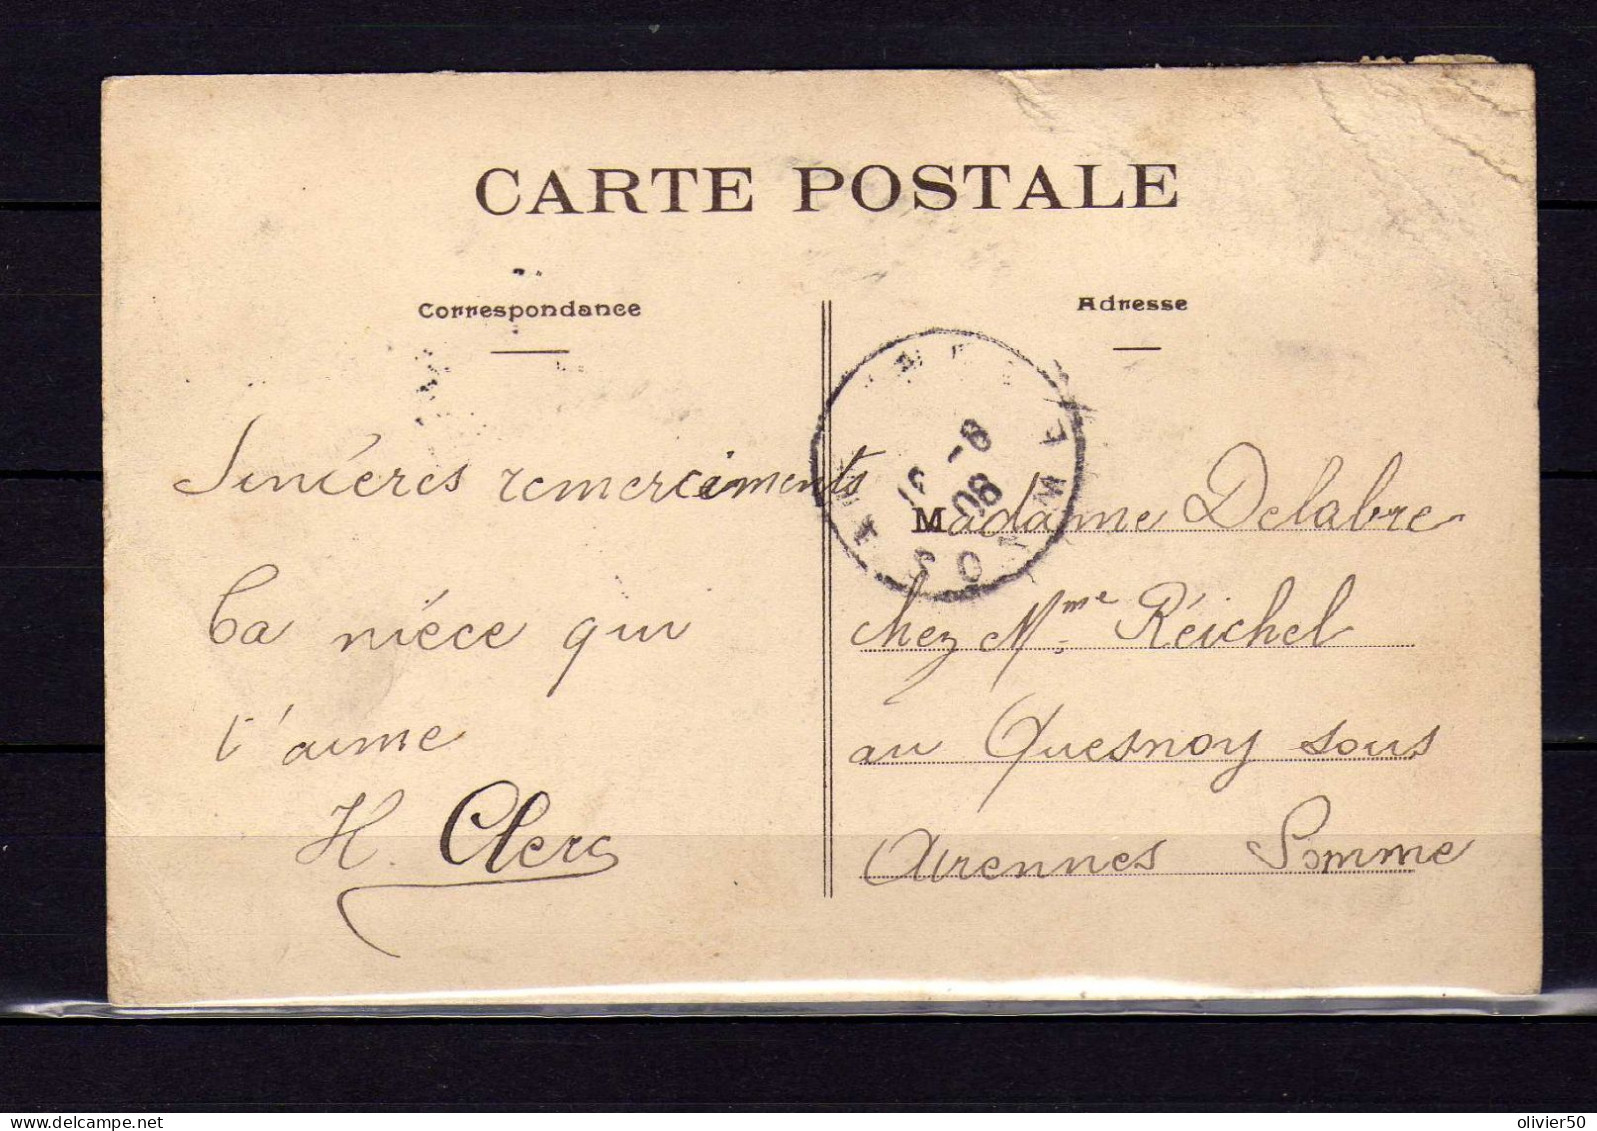 CARTE POSTALE
Correspondance
Adresse
Sincères remerciments
Ta nièce qui
t'aime
H. Clerc
Madame Delabre
chez Mme Réichel
au Quesnoy sous
Airennes Somme
-8
08
SOMME
olivier50